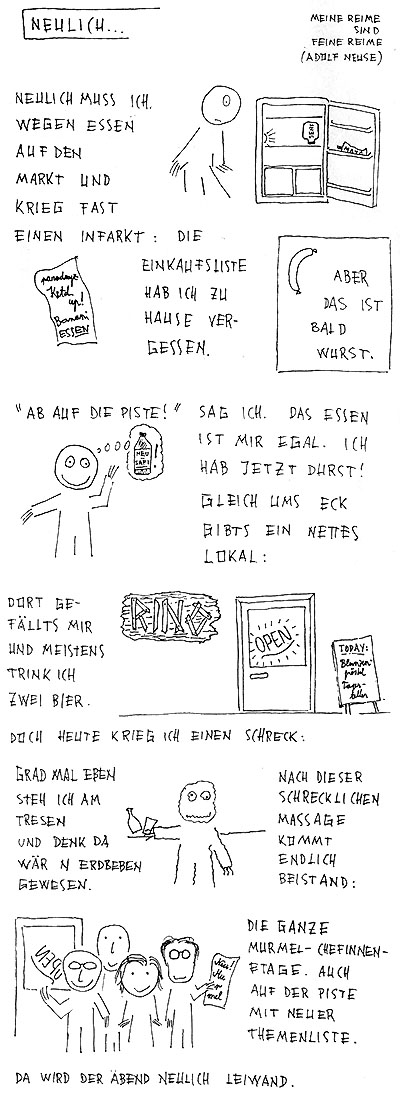 NEULICH...
MEINE REIME
SIND
FEINE REIME
(ADOLF NEUSE)
NEULICH MUSS ICH
WEGEN ESSEN
AUF DEN
MARKT UND
KRIEG FAST
EINEN INFARKT: DIE
EINKAUFSLISTE
HAB ICH ZU
HAUSE VER-
GESSEN.
SENF
paradeys
Ketch
up!
Banani
ESSEN
ABER
DAS IST
BALD
WURST.
"AB AUF DIE PISTE!" SAG ICH. DAS ESSEN
IST MIR EGAL. ICH
HAB JETZT DURST!
GLEICH UMS ECK
GIBTS EIN NETTES
LOKAL:
NEU
DORT GE-
FÄLLTS MIR
UND MEISTENS
TRINK ICH
ZWEI BIER.
RINO
OPEN
TODAY:
Blunzen
gröstl
Tages-
teller
DOCH HEUTE KRIEG ICH EINEN SCHRECK:
GRAD MAL EBEN
STEH ICH AM
TRESEN
UND DENK DA
WÄR N ERDBEBEN
GEWESEN.
NACH DIESER
SCHRECKLICHEN
MASSAGE
KOMMT
ENDLICH
BEISTAND:
OPEN
Neu!
Mu
r
mel
DIE GANZE
MURMEL-CHEFINNEN-
ETAGE. AUCH
AUF DER PISTE
MIT NEUER
THEMENLISTE.
DA WIRD DER ABEND NEULICH LEIWAND.